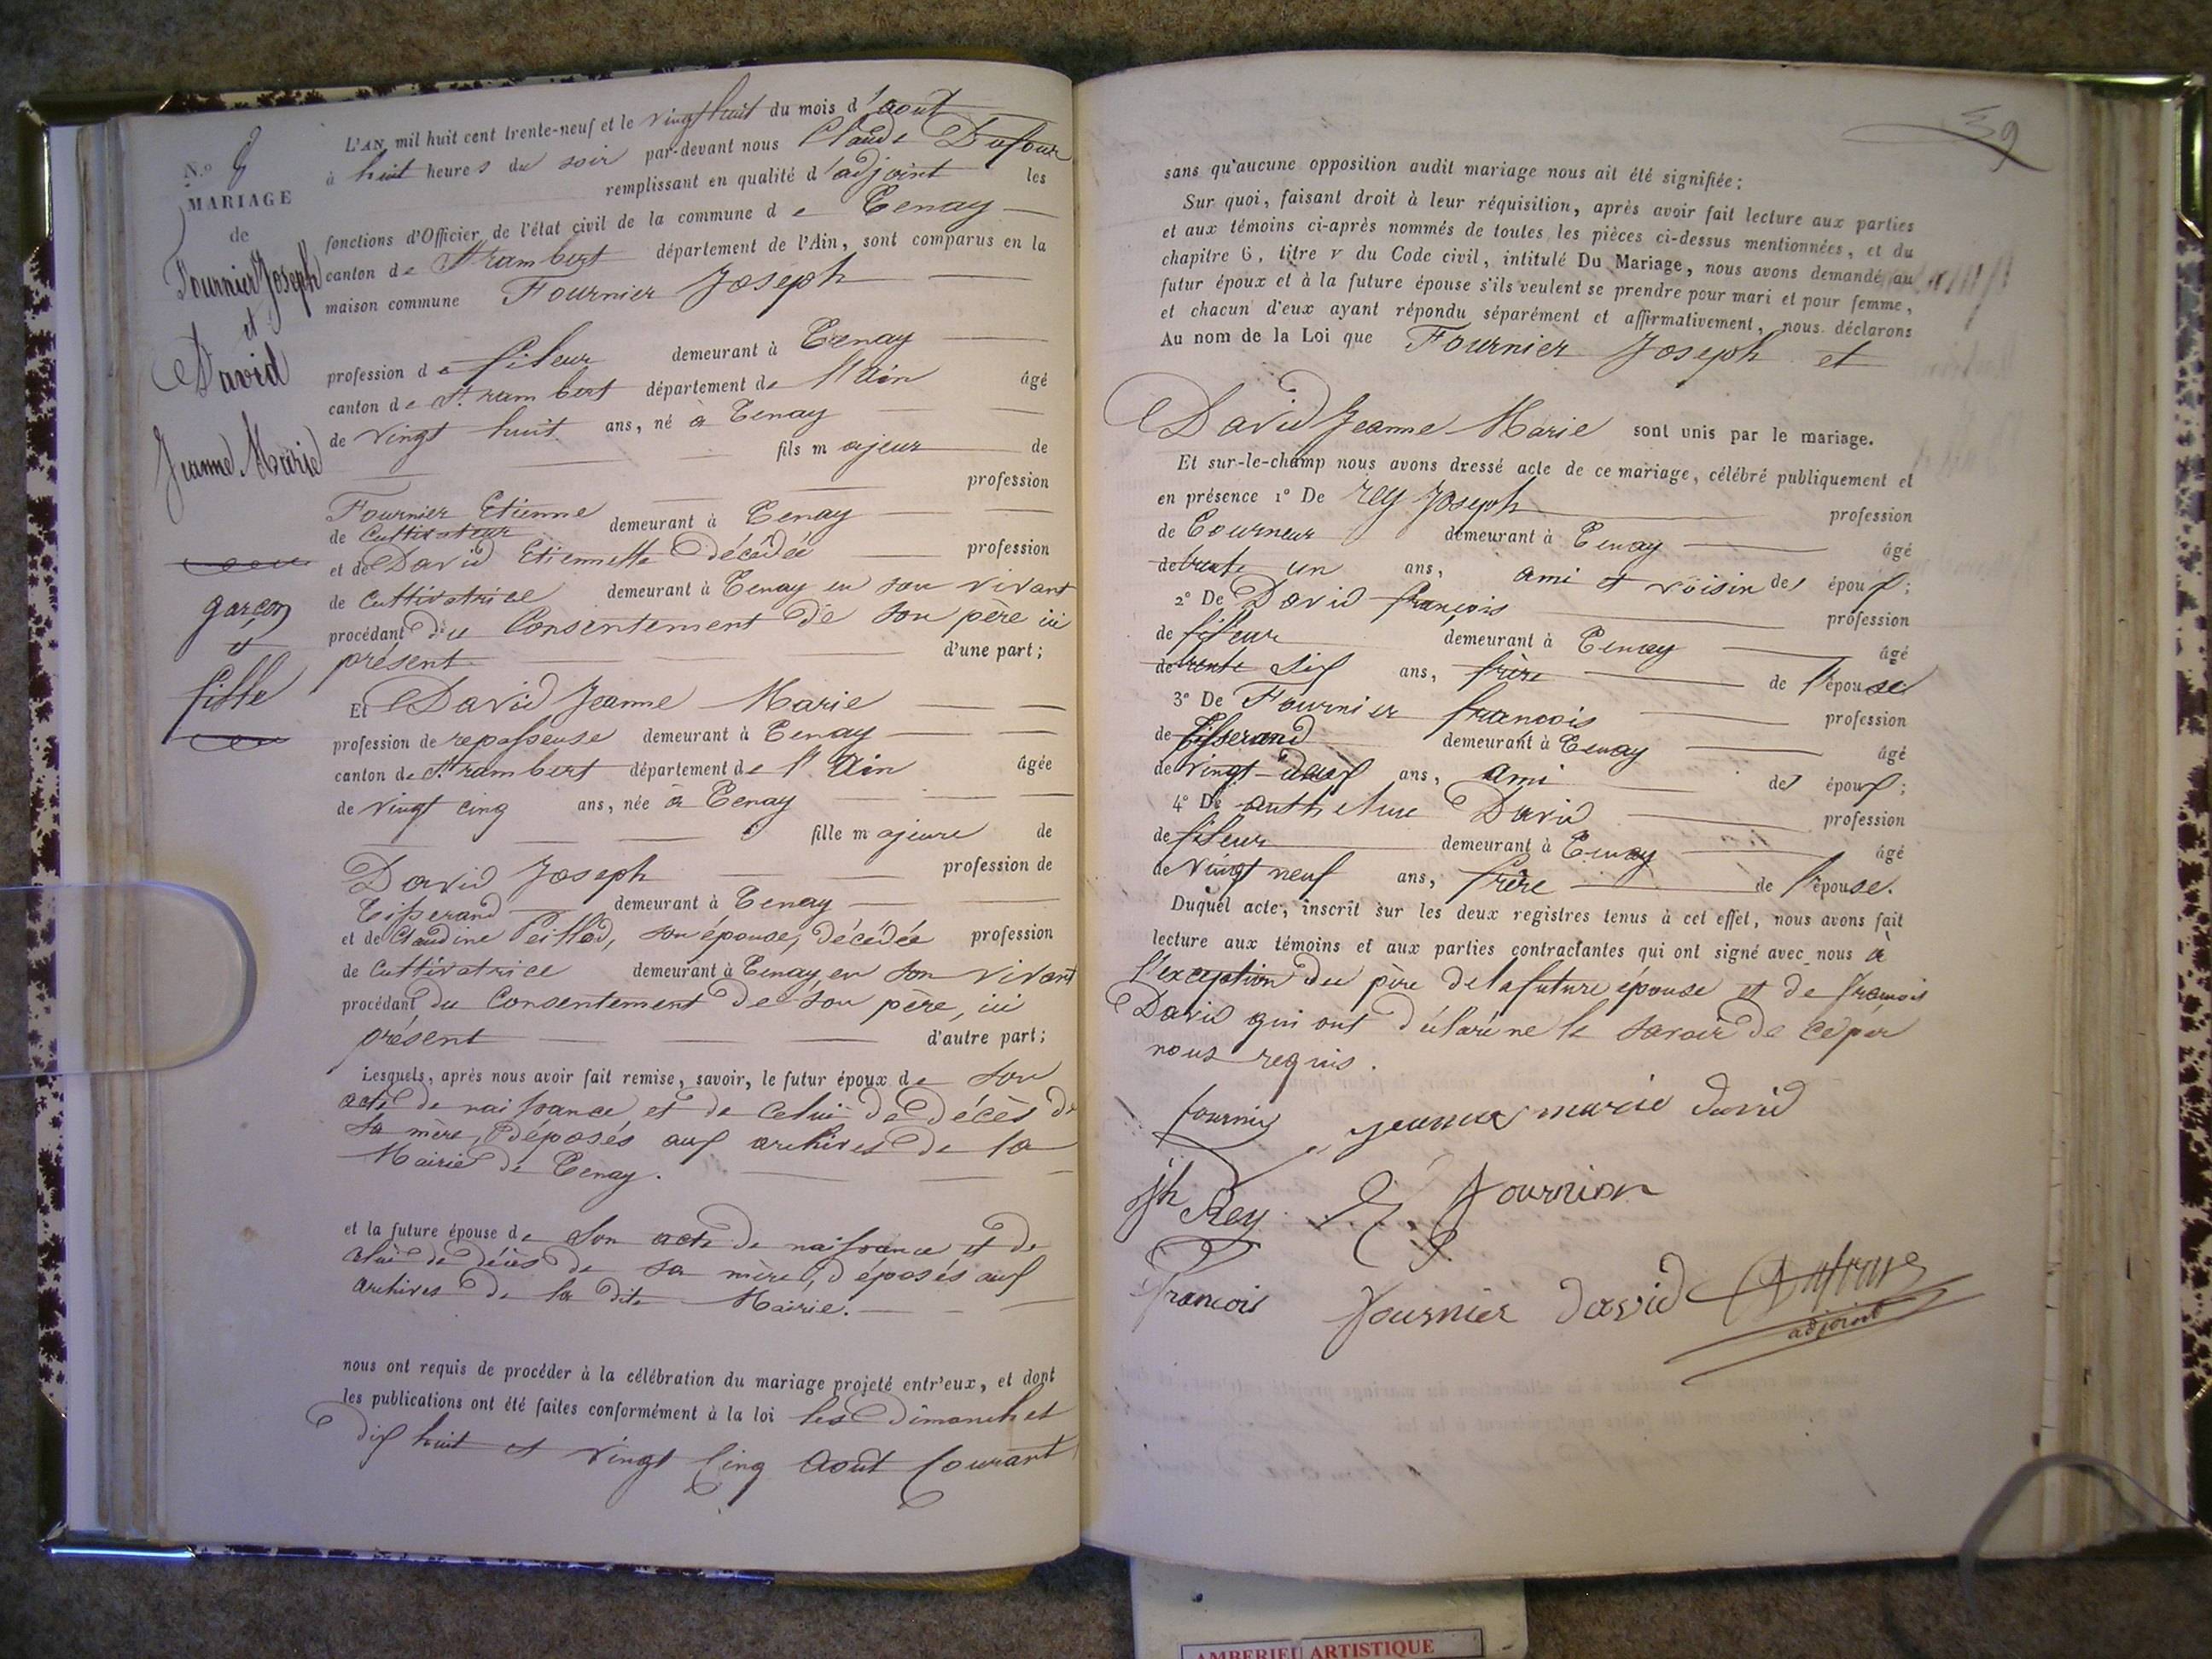 N.o 8
MARIAGE
de
Fournier Joseph
et
David
Jeanne Marie
garçon
et
fille
L'AN mil huit cent trente-neuf et le vingt huit du mois d'août
à huit heures du soir par-devant nous Claude Dufour
remplissant en qualité d'adjoint les
fonctions d'Officier de l'état civil de la commune de Tenay
canton de St rambert département de l'Ain, sont comparus en la
maison commune Fournier Joseph
profession de fileur demeurant à Tenay
canton de St. rambert département de l'Ain âgé
de vingt huit ans, né à Tenay
fils majeur de
Fournier Etienne profession
de Cultivateur demeurant à Tenay
et de David Etiennette décédée profession
de Cultivatrice demeurant à Tenay en son vivant
procédant du Consentement de son père ici
présent d'une part;
Et David Jeanne Marie
profession de repasseuse demeurant à Tenay
canton de St. rambert département de l'Ain âgée
de vingt cinq ans, née à Tenay
fille majeure de
David Joseph profession de
Tisserand demeurant à Tenay
et de Claudine Peillod, son épouse, décédée profession
de Cultivatrice demeurant à Tenay, en son vivant
procédant du Consentement de son père, ici
présent d'autre part;
Lesquels, après nous avoir fait remise, savoir, le futur époux de son
acte de naissance et de celui de décès de
sa mère, déposés aux archives de la
Mairie de Tenay.
et la future épouse de son acte de naissance et de
celui de décès de sa mère, déposés aux
archives de la dite Mairie.
nous ont requis de procéder à la célébration du mariage projeté entr'eux, et dont
les publications ont été faites conformément à la loi les dimanches
dix huit et vingt cinq août Courant
39
sans qu'aucune opposition audit mariage nous ait été signifiée;
Sur quoi, faisant droit à leur réquisition, après avoir fait lecture aux parties
et aux témoins ci-après nommés de toutes les pièces ci-dessus mentionnées, et du
chapitre 6, titre v du Code civil, intitulé Du Mariage, nous avons demandé au
futur époux et à la future épouse s'ils veulent se prendre pour mari et pour femme,
et chacun d'eux ayant répondu séparément et affirmativement, nous déclarons
Au nom de la Loi que Fournier Joseph et
David Jeanne Marie sont unis par le mariage.
Et sur-le-champ nous avons dressé acte de ce mariage, célébré publiquement et
en présence 1° De rey Joseph profession
de Tourneur demeurant à Tenay âgé
de trente un ans, ami et voisin des époux;
2° De David françois profession
de fileur demeurant à Tenay âgé
de trente six ans, frère de l'épouse
3° De Fournier françois profession
de Tisserand demeurant à Tenay âgé
de vingt deux ans, ami des époux;
4° De anthelme David profession
de fileur demeurant à Tenay âgé
de vingt neuf ans, frère de l'épouse.
Duquel acte, inscrit sur les deux registres tenus à cet effet, nous avons fait
lecture aux témoins et aux parties contractantes qui ont signé avec nous à
l'exception du père de la future épouse et de françois
David qui ont déclaré ne le savoir de ce par
nous requis.
fournier jeanne marie david
jh Rey E. fournier
francois fournier david Dufour
adjoint
AMBERIEU ARTISTIQUE